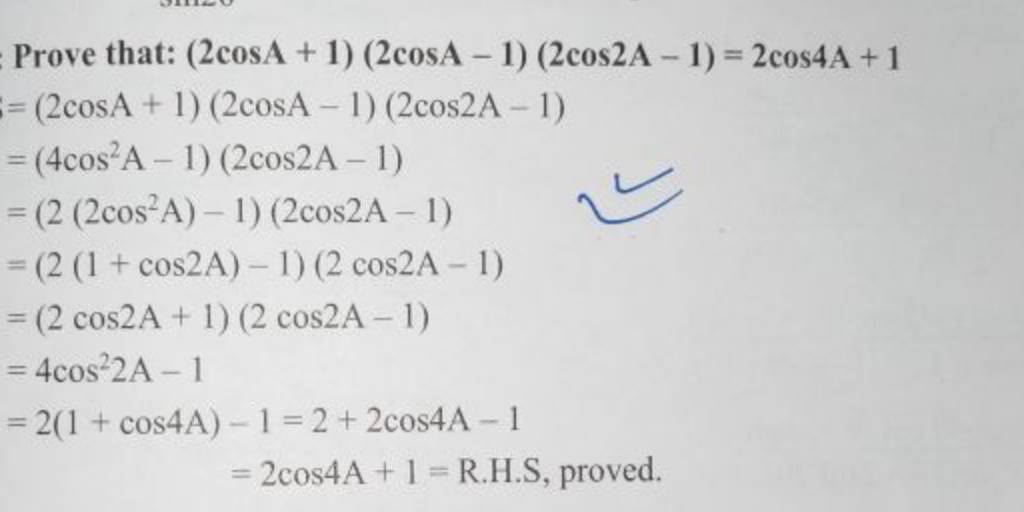 Prove that: (2cosA + 1) (2cosA – 1) (2cos2A – 1) = 2cos4A + 1
= (2cosA + 1) (2cosA – 1) (2cos2A – 1)
= (4cos²A – 1) (2cos2A – 1)
= (2 (2cos²A) – 1) (2cos2A – 1)
= (2 (1 + cos2A) – 1) (2 cos2A – 1)
= (2 cos2A + 1) (2 cos2A – 1)
= 4cos²2A – 1
= 2(1 + cos4A) – 1 = 2 + 2cos4A – 1
= 2cos4A + 1 = R.H.S, proved.